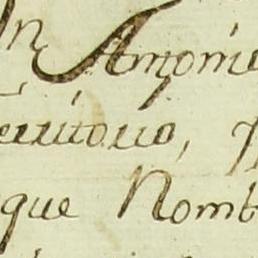 n Antonio
erritorio,
que Nomb